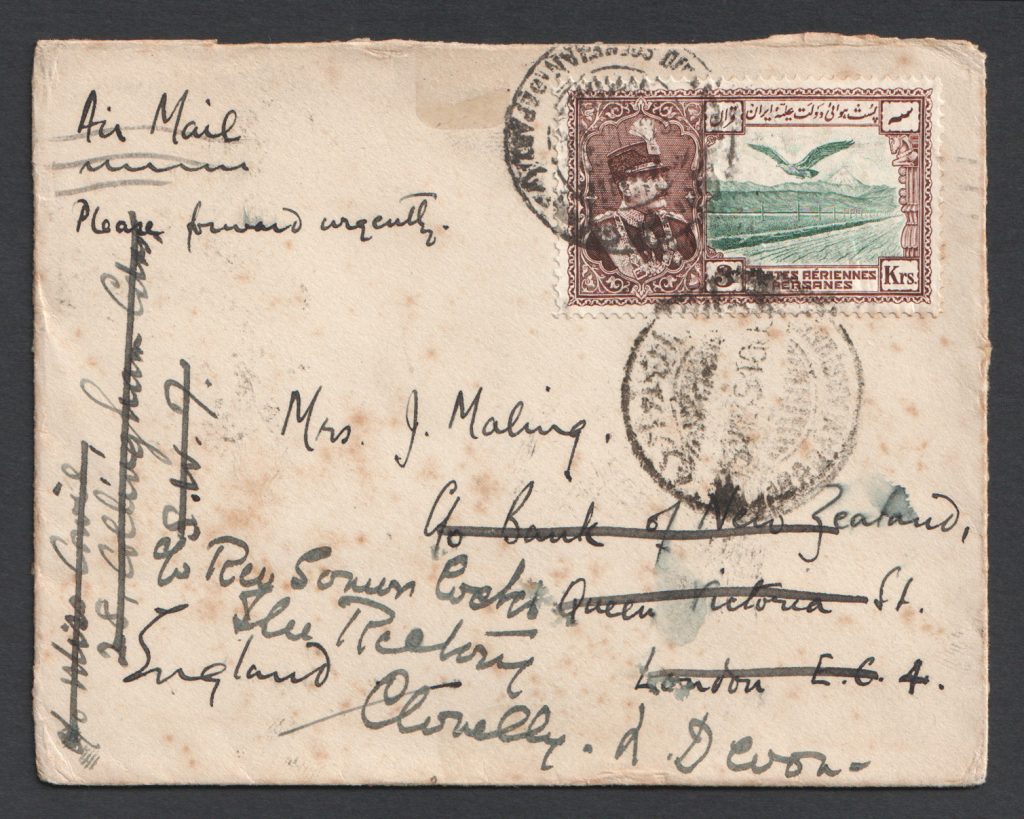 Air Mail
Please forward urgently.
پست هوائی دولت علیه ایران
3
Krs.
POSTES AÉRIENNES
PERSANES
Mrs. J. Maling.
c/o Bank of New Zealand,
Queen Victoria St.
London E.C. 4.
England
c/o Miss
28,
S.W. 7.
c/o Rev Somers Cocks
The Rectory
Clovelly. N. Devon